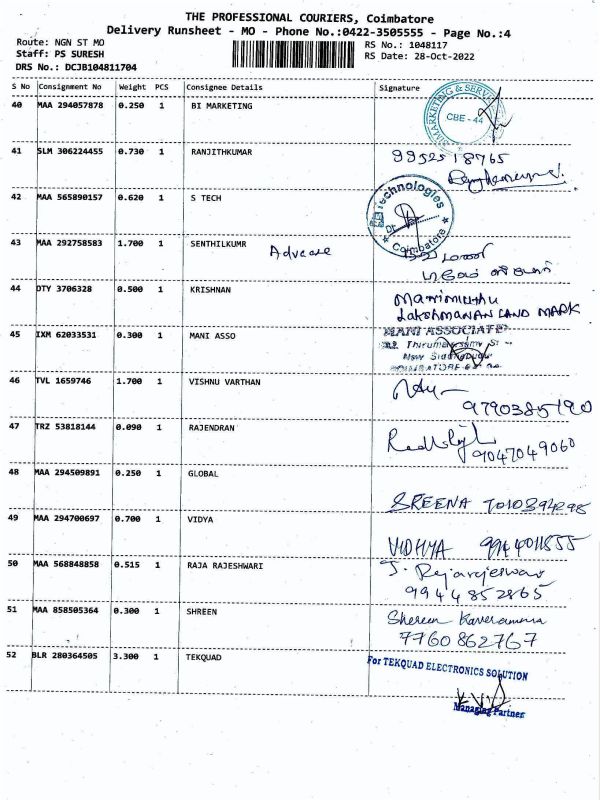 THE PROFESSIONAL COURIERS, Coimbatore
Delivery Runsheet - MO - Phone No.:0422-3505555 - Page No.:4
Route: NGN ST MO
Staff: PS SURESH
DRS No.: DCJB104811704
RS No.: 1048117
RS Date: 28-Oct-2022
S No Consignment No Weight PCS Consignee Details Signature
40 MAA 294057878 0.250 1 BI MARKETING
CBE - 44
41 SLM 306224455 0.730 1 RANJITHKUMAR
9952518765
42 MAA 565890157 0.620 1 S TECH
Technologies
Coimbatore
43 MAA 292758583 1.700 1 SENTHILKUMR
44 DTY 3706328 0.500 1 KRISHNAN
Marimuthu
LAKSHMANAN LAND MARK
45 IXM 62033531 0.300 1 MANI ASSO
MANI ASSOCIATE
46 TVL 1659746 1.700 1 VISHNU VARTHAN
9790385190
47 TRZ 53818144 0.090 1 RAJENDRAN
9047049060
48 MAA 294509891 0.250 1 GLOBAL
SREENA 7010394298
49 MAA 294700697 0.700 1 VIDYA
VIDHYA 9944011855
50 MAA 568848858 0.515 1 RAJA RAJESHWARI
J. Rajarajeswari
9944852865
51 MAA 858505364 0.300 1 SHREEN
Shereen Kaveramma
7760862767
52 BLR 280364505 3.300 1 TEKQUAD
For TEKQUAD ELECTRONICS SOLUTION
Managing Partner